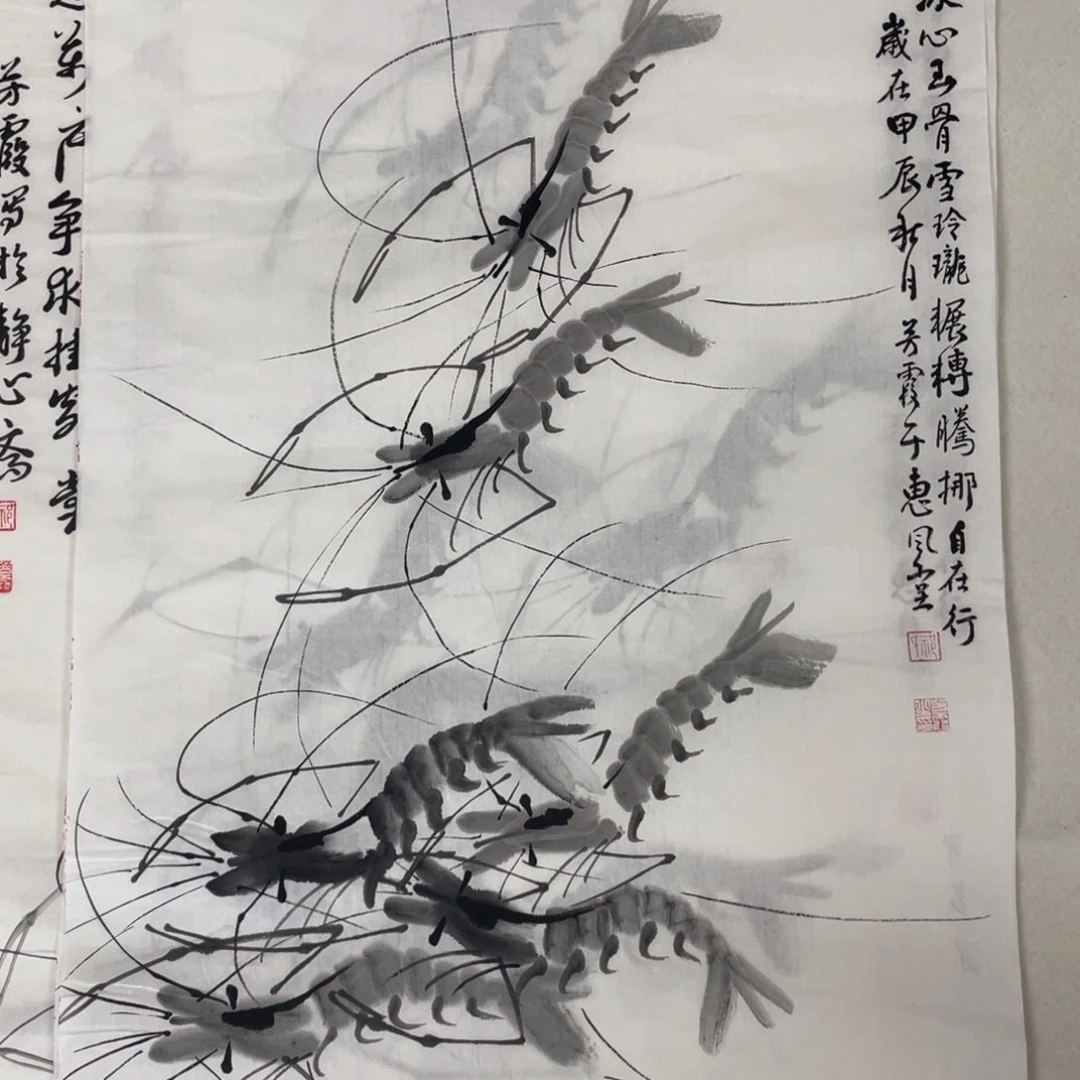 冰心玉骨雪玲瓏輾轉騰挪自在行
歲在甲辰秋月芳霞于惠風堂
萬户争永挂
芳霞写於静心斋